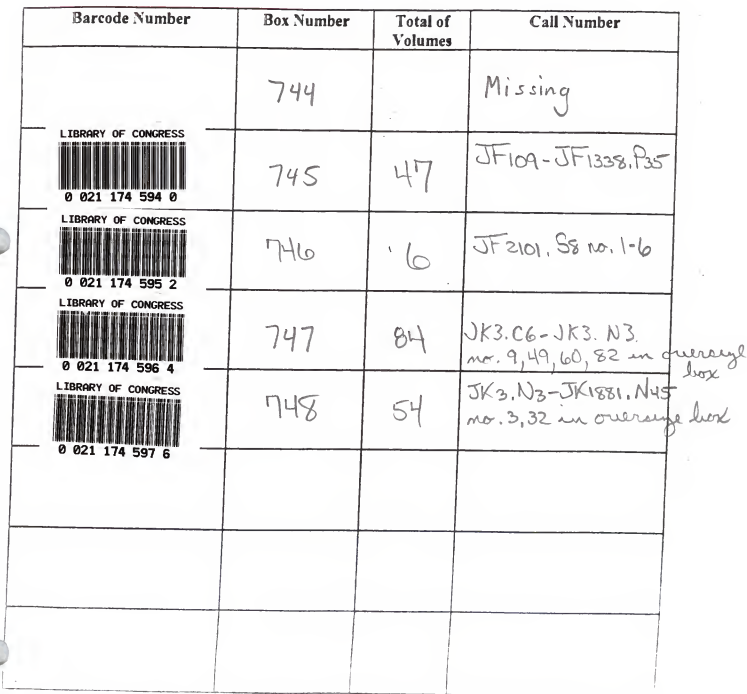 Barcode Number Box Number Total of Volumes Call Number
744 Missing
LIBRARY OF CONGRESS
0 021 174 594 0
745 47 JF109-JF1338.P35
LIBRARY OF CONGRESS
0 021 174 595 2
746 6 JF2101.S8 no. 1-6
LIBRARY OF CONGRESS
0 021 174 596 4
747 84 JK3.C6-JK3.N3.
no. 9,49,60,82 in oversize
box
LIBRARY OF CONGRESS
0 021 174 597 6
748 54 JK3.N3-JK1881.N45
no. 3,32 in oversize box